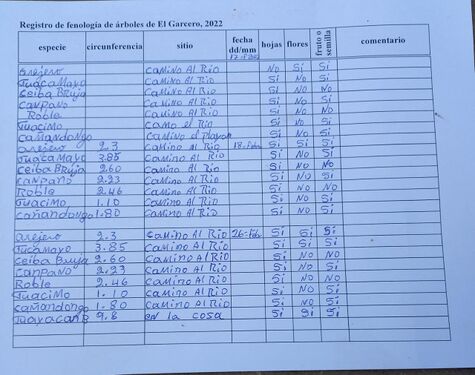 Registro de fenología de árboles de El Garcero, 2022
especie circunferencia sitio fecha dd/mm hojas flores fruto o semilla comentario
arejero camino Al Rio NO Si Si
guacaMayo camino Al Rio Si NO Si
Ceiba Bruja camino Al Rio Si NO NO
canpano camino Al Rio Si NO Si
Roble camino Al Rio Si NO NO
guacimo camo el Rio Si NO Si
cañandongo camino el playon Si NO Si
arejero 2.3 camino Al Rio 18-Feb Si Si Si
guacaMayo 3.85 camino Al Rio Si NO Si
ceiba Bruja 2.60 camino Al Rio Si NO NO
canpano 2.23 camino Al Rio Si NO Si
Roble 2.46 camino Al Rio Si NO NO
guacimo 1.10 camino Al Rio Si NO Si
cañandongo 1.80 camino Al Rio Si NO Si
arejero 2.3 camino Al Rio 26-Feb Si Si Si
3.85 camino Al Rio Si Si Si
ceiba Bruja 2.60 camino Al Rio Si NO NO
canpano 2.23 camino Al Rio Si NO Si
Roble 2.46 camino Al Rio Si NO NO
guacimo 1.10 camino Al Rio Si NO Si
cañandongo 1.80 camino Al Rio Si NO Si
9.8 en la cosa Si Si Si